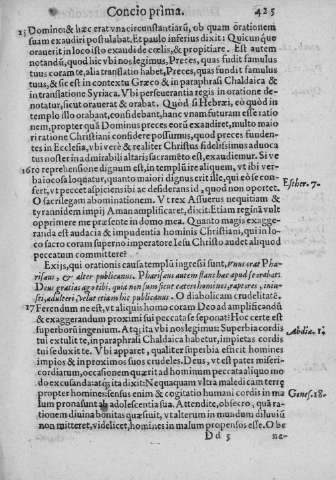 Concio prima. 425
15 Domine: & hæc erat vna circunstantiarũ, ob quam orationem
suam exaudiri postulabat, Et paulo inferius dixit: Quicunque
orauerit in loco isto exaudi de cœlis, & propitiare. Est autem
notandũ, quod hîc vbi nos legimus, Preces, quas fudit famulus
tuus coram te, alia translatio habet, Preces, quas fundit famulus
tuus, & sic est in contextu Græco & in paraphrasi Chaldaica &
in translatione Syriaca. Vbi perseuerantia regis in oratione de-
notatur, sicut orauerat & orabat. Quòd si Hebræi, eò quòd in
templo illo orabant, considebant, hanc vnam futuram esse ratio
nem, propter quã Dominus preces eorũ exaudiret, multo maio
ri ratione Christiani confidere possumus, quod preces funden-
tes in Ecclesia, vbi verè & realiter Christus fidelissimus aduoca
tus noster in admirabili altaris sacramẽto est, exaudiemur. Siue
16 ro reprehensione dignum est, in templũ ire aliquem, vt ibi ver-
ba iocosa loquatur, quanto maiori dignus erit ille, qui eò se con-
fert, vt peccet aspiciens ibi ac desiderans id, quod non oportet. Esther. 7.
O sacrilegam abominationem. Vt rex Assuerus nequitiam &
tyrannidem impij Aman amplificaret, dixit: Etiam reginã vult
opprimere me præsente in domo mea. Quanto magis exagge-
randa est audacia & impudentia hominis Christiani, qui in lo-
co sacro coram superno imperatore Iesu Christo audet aliquod
peccatum committere?
Ex ijs, qui orationis causa templũ ingressi sunt, vnus erat Pha-
risæus, & alter publicanus. Pharisæus autem stans hæc apud se orabat.
Deus gratias ago tibi, quia non sum sicut cæteri homines, raptores, iniu-
sti, adulteri, velut etiam hic publicanus. O diabolicam crudelitatẽ.
17 Ferendum ne est, vt aliquis homo coram Deo ad amplificandũ
& exaggerandum proximi sui peccata se ponat? Hoc certe est
superiorũ ingenium. Atq; ita vbi nos legimus: Superbia cordis Abdiæ. 1.
tui extulit te, in paraphrasi Chaldaica habetur, impietas cordis
tui seduxit te. Vbi apparet, qualiter superbia efficit homines
impios & in proximos suos crudeles. Deus, vt est pater miseri-
cordiarum, occasionem quærit ad hominum peccata aliquo mo
do excusanda atq; ita dixit: Nequaquam vltra maledicam terræ
propter homines: sensus enim & cogitatio humani cordis in ma Genes. 18.
lum prona sunt ab adolescentia sua. Attendite, obsecro, quã ra-
tionem diuina bonitas quæsiuit, vt alterum in mundum diluuiũ
non mitteret, videlicet, homines in malum propensos esse. O be
Dd 5 na-